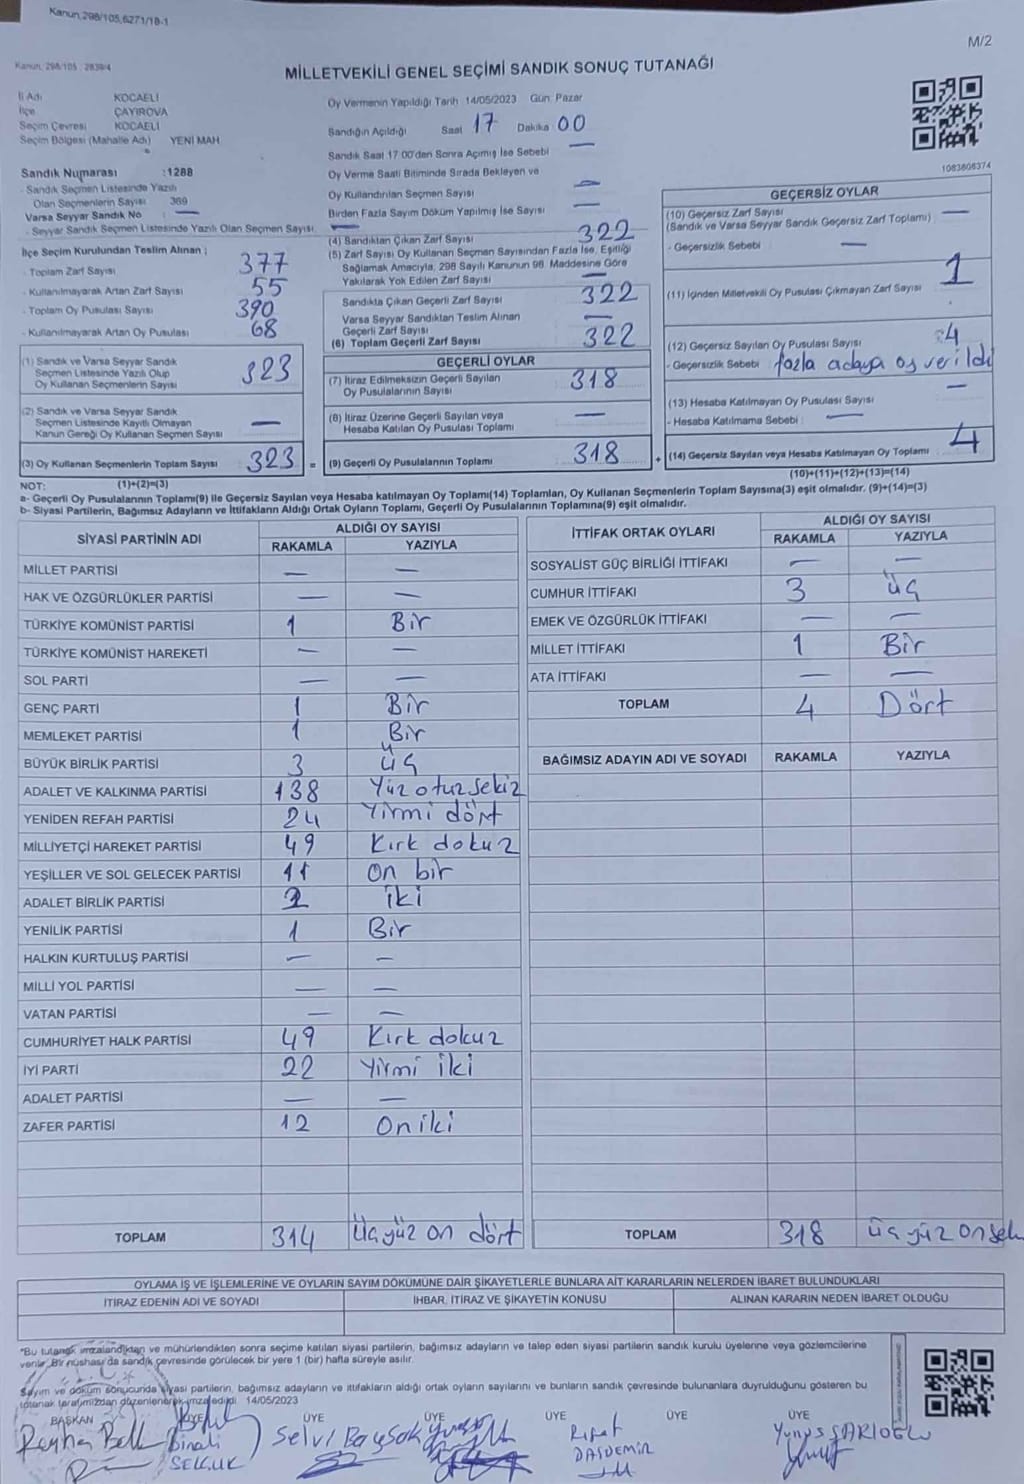 Kanun,298/105,6271/18-1
M/2
Kanun, 298/105 : 2839/4
MİLLETVEKİLİ GENEL SEÇİMİ SANDIK SONUÇ TUTANAĞI
İl Adı KOCAELİ
İlçe ÇAYIROVA
Seçim Çevresi KOCAELİ
Seçim Bölgesi (Mahalle Adı) YENİ MAH
Oy Vermenin Yapıldığı Tarih 14/05/2023 Gün: Pazar
Sandığın Açıldığı Saat 17 Dakika 00
Sandık Saat 17:00'den Sonra Açımış İse Sebebi —
Oy Verme Saati Bitiminde Sırada Bekleyen ve
Oy Kullandırılan Seçmen Sayısı —
Birden Fazla Sayım Döküm Yapılmış İse Sayısı —
1083606374
Sandık Numarası :1288
- Sandık Seçmen Listesinde Yazılı
Olan Seçmenlerin Sayısı 369
Varsa Seyyar Sandık No —
- Seyyar Sandık Seçmen Listesinde Yazılı Olan Seçmen Sayısı —
İlçe Seçim Kurulundan Teslim Alınan ;
- Toplam Zarf Sayısı 377
- Kullanılmayarak Artan Zarf Sayısı 55
- Toplam Oy Pusulası Sayısı 390
- Kullanılmayarak Artan Oy Pusulası 68
(1) Sandık ve Varsa Seyyar Sandık
Seçmen Listesinde Yazılı Olup
Oy Kullanan Seçmenlerin Sayısı 323
(2) Sandık ve Varsa Seyyar Sandık
Seçmen Listesinde Kayıtlı Olmayan
Kanun Gereği Oy Kullanan Seçmen Sayısı —
(3) Oy Kullanan Seçmenlerin Toplam Sayısı 323 =
(4) Sandıktan Çıkan Zarf Sayısı 322
(5) Zarf Sayısı Oy Kullanan Seçmen Sayısından Fazla İse, Eşitliği
Sağlamak Amacıyla, 298 Sayılı Kanunun 98. Maddesine Göre
Yakılarak Yok Edilen Zarf Sayısı —
Sandıkta Çıkan Geçerli Zarf Sayısı 322
Varsa Seyyar Sandıktan Teslim Alınan
Geçerli Zarf Sayısı —
(6) Toplam Geçerli Zarf Sayısı 322
GEÇERLİ OYLAR
(7) İtiraz Edilmeksizin Geçerli Sayılan
Oy Pusulalarının Sayısı 318
(8) İtiraz Üzerine Geçerli Sayılan veya
Hesaba Katılan Oy Pusulası Toplamı —
(9) Geçerli Oy Pusulalarının Toplamı 318 +
GEÇERSİZ OYLAR
(10) Geçersiz Zarf Sayısı —
(Sandık ve Varsa Seyyar Sandık Geçersiz Zarf Toplamı)
- Geçersizlik Sebebi —
(11) İçinden Milletvekili Oy Pusulası Çıkmayan Zarf Sayısı 1
(12) Geçersiz Sayılan Oy Pusulası Sayısı 4
- Geçersizlik Sebebi fazla adaya oy verildi
(13) Hesaba Katılmayan Oy Pusulası Sayısı —
- Hesaba Katılmama Sebebi : —
(14) Geçersiz Sayılan veya Hesaba Katılmayan Oy Toplamı 4
(10)+(11)+(12)+(13)=(14)
NOT: (1)+(2)=(3)
a- Geçerli Oy Pusulalarının Toplamı(9) ile Geçersiz Sayılan veya Hesaba katılmayan Oy Toplamı(14) Toplamları, Oy Kullanan Seçmenlerin Toplam Sayısına(3) eşit olmalıdır. (9)+(14)=(3)
b- Siyasi Partilerin, Bağımsız Adayların ve İttifakların Aldığı Ortak Oyların Toplamı, Geçerli Oy Pusulalarının Toplamına(9) eşit olmalıdır.
SİYASİ PARTİNİN ADI ALDIĞI OY SAYISI
RAKAMLA YAZIYLA
MİLLET PARTİSİ — —
HAK VE ÖZGÜRLÜKLER PARTİSİ — —
TÜRKİYE KOMÜNİST PARTİSİ 1 Bir
TÜRKİYE KOMÜNİST HAREKETİ — —
SOL PARTİ — —
GENÇ PARTİ 1 Bir
MEMLEKET PARTİSİ 1 Bir
BÜYÜK BİRLİK PARTİSİ 3 üç
ADALET VE KALKINMA PARTİSİ 138 Yüz otuz sekiz
YENİDEN REFAH PARTİSİ 24 Yirmi dört
MİLLİYETÇİ HAREKET PARTİSİ 49 Kırk dokuz
YEŞİLLER VE SOL GELECEK PARTİSİ 11 On bir
ADALET BİRLİK PARTİSİ 2 iki
YENİLİK PARTİSİ 1 Bir
HALKIN KURTULUŞ PARTİSİ — —
MİLLİ YOL PARTİSİ — —
VATAN PARTİSİ — —
CUMHURİYET HALK PARTİSİ 49 Kırk dokuz
İYİ PARTİ 22 Yirmi iki
ADALET PARTİSİ — —
ZAFER PARTİSİ 12 On iki
TOPLAM 314 Üç yüz on dört
İTTİFAK ORTAK OYLARI ALDIĞI OY SAYISI
RAKAMLA YAZIYLA
SOSYALİST GÜÇ BİRLİĞİ İTTİFAKI — —
CUMHUR İTTİFAKI 3 üç
EMEK VE ÖZGÜRLÜK İTTİFAKI — —
MİLLET İTTİFAKI 1 Bir
ATA İTTİFAKI — —
TOPLAM 4 Dört
BAĞIMSIZ ADAYIN ADI VE SOYADI RAKAMLA YAZIYLA
TOPLAM 318 üç yüz on sek
OYLAMA İŞ VE İŞLEMLERİNE VE OYLARIN SAYIM DÖKÜMÜNE DAİR ŞİKAYETLERLE BUNLARA AİT KARARLARIN NELERDEN İBARET BULUNDUKLARI
İTİRAZ EDENİN ADI VE SOYADI İHBAR, İTİRAZ VE ŞİKAYETİN KONUSU ALINAN KARARIN NEDEN İBARET OLDUĞU
*Bu tutanak imzalandıktan ve mühürlendikten sonra seçime katılan siyasi partilerin, bağımsız adayların ve talep eden siyasi partilerin sandık kurulu üyelerine veya gözlemcilerine
verilir. Bir nüshası da sandık çevresinde görülecek bir yere 1 (bir) hafta süreyle asılır.
Sayım ve döküm sonucunda siyasi partilerin, bağımsız adayların ve ittifakların aldığı ortak oyların sayılarını ve bunların sandık çevresinde bulunanlara duyrulduğunu gösteren bu
tutanak tarafımızdan düzenlenerek imza edildi 14/05/2023
BAŞKAN ÜYE ÜYE ÜYE ÜYE ÜYE ÜYE
Binali
SELÇUK
Selvi
Rıfat
DAŞDEMİR
Yunus SARIOĞLU